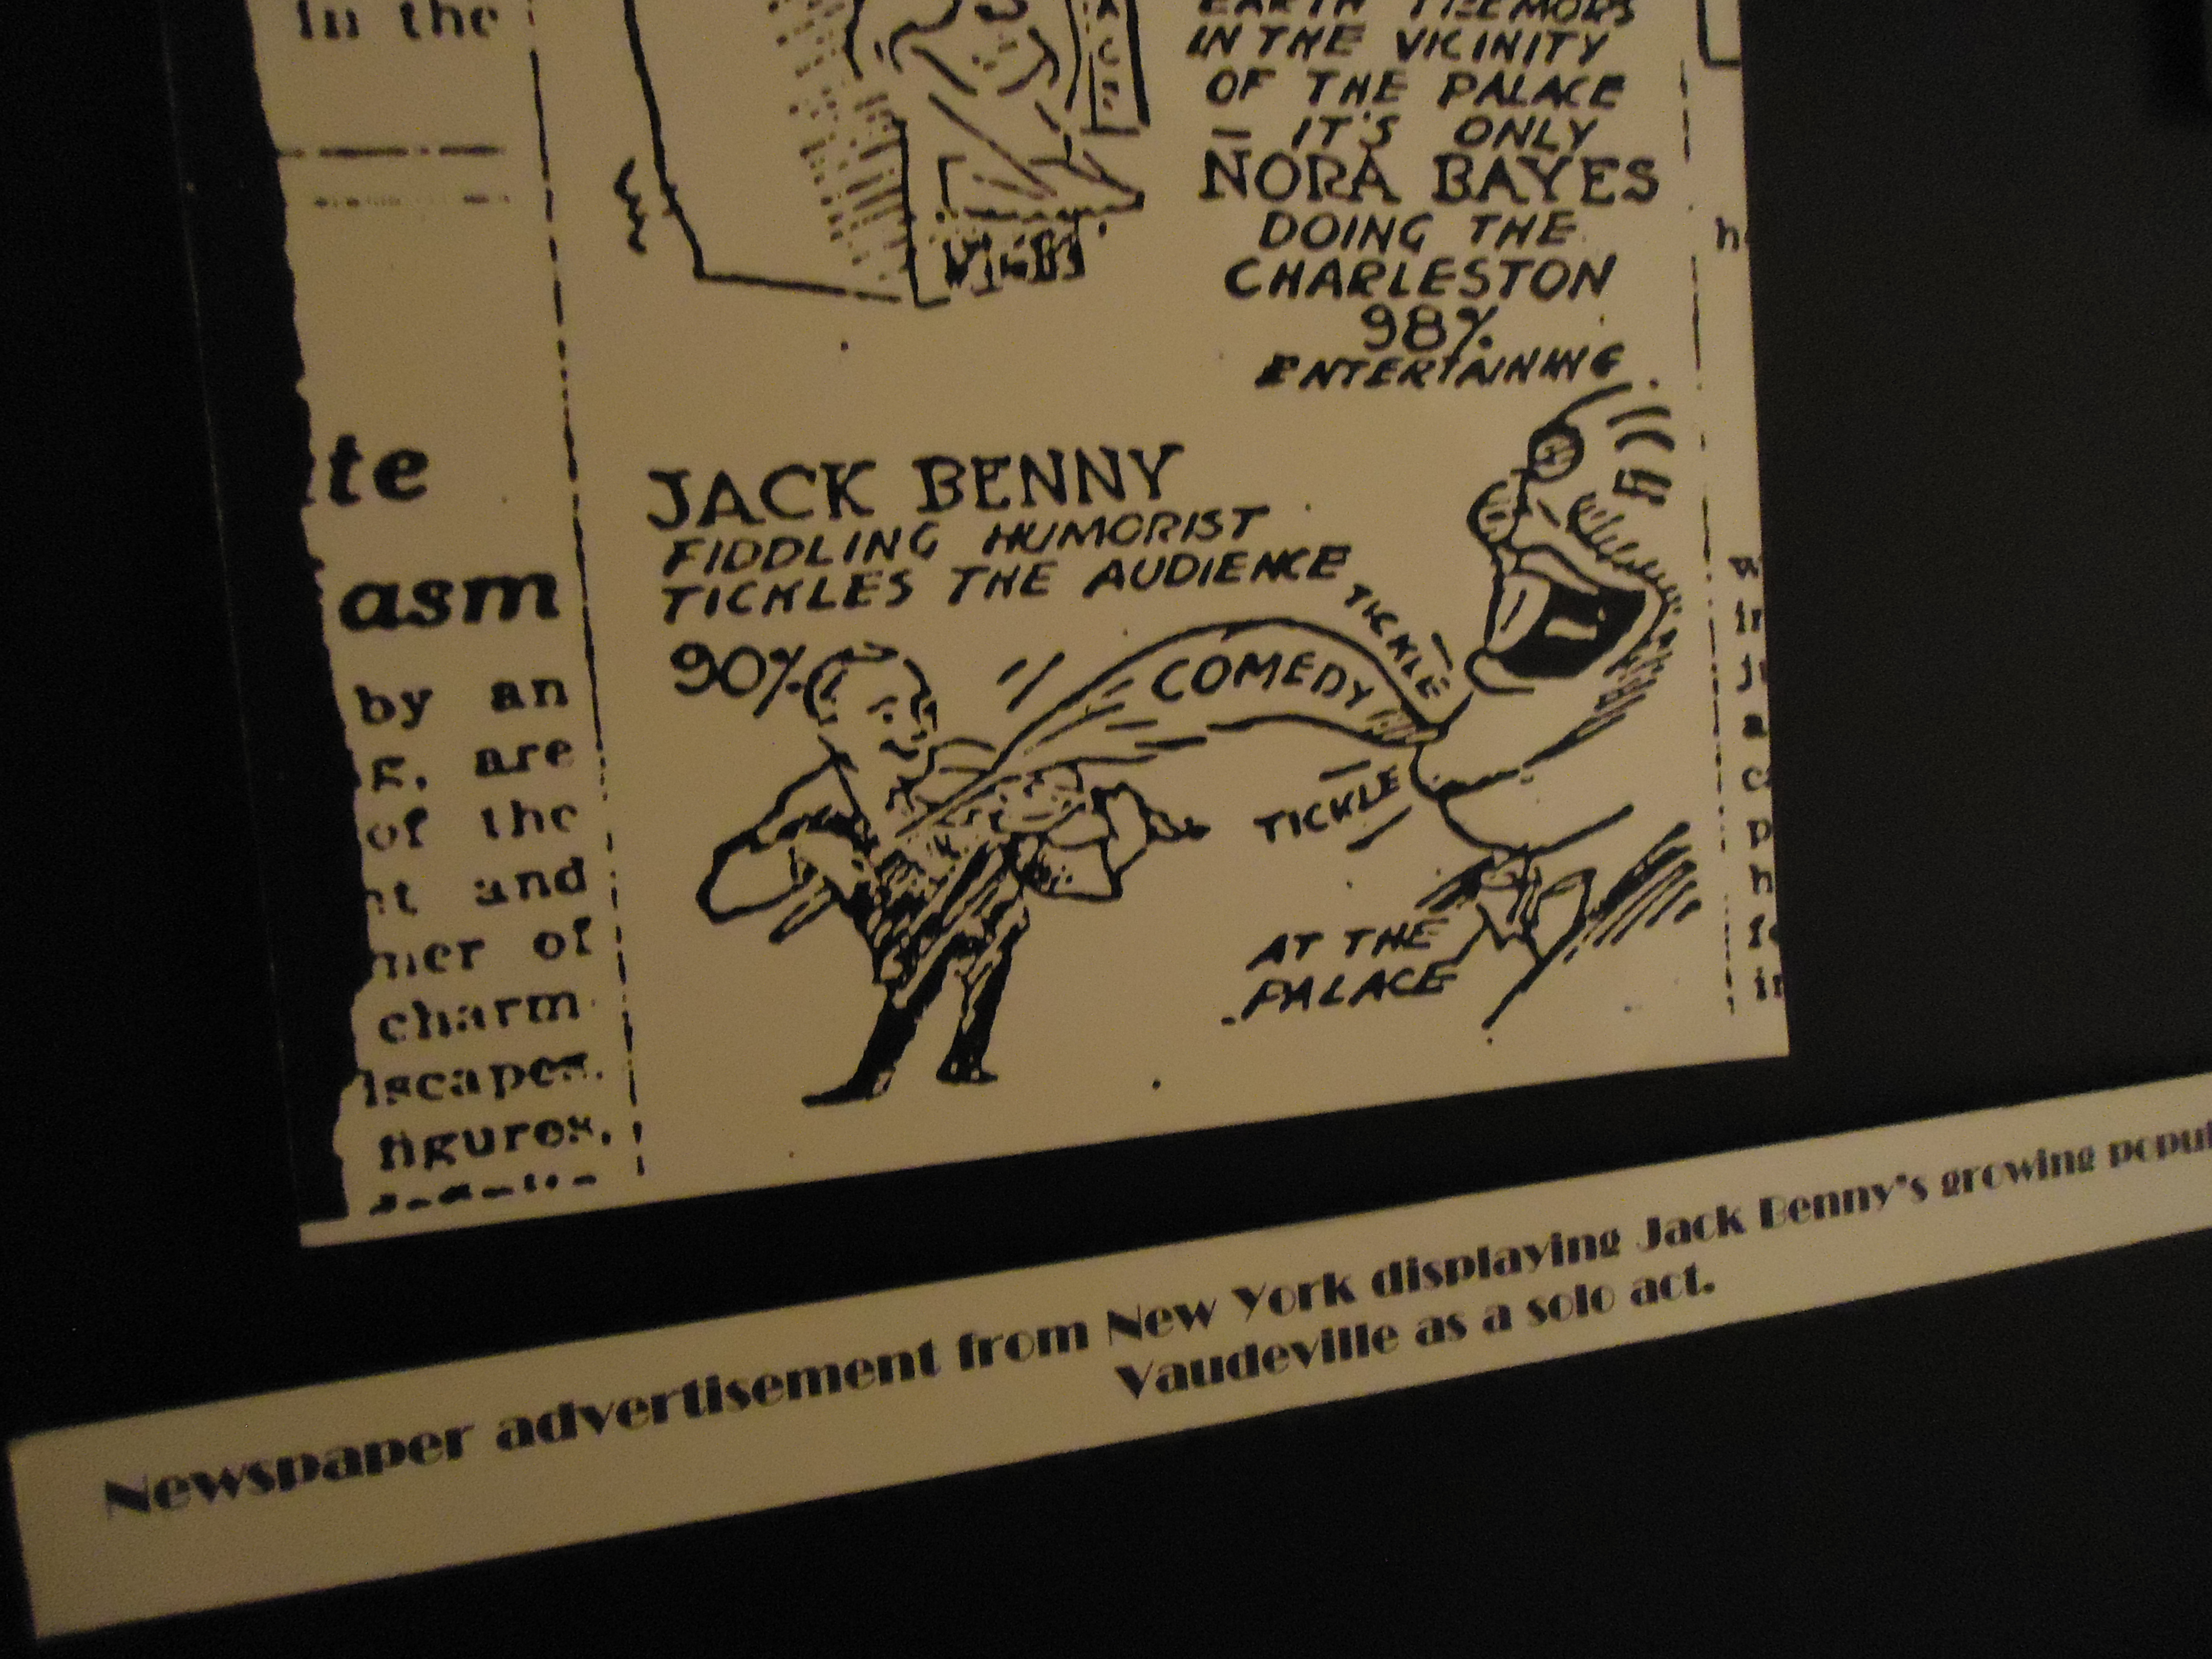 in the
te
asm
by an
g, are
of the
nt and
ner of
charm
dscapes.
figures,
EARTH TREMORS
IN THE VICINITY
OF THE PALACE
— IT'S ONLY
NORA BAYES
DOING THE
CHARLESTON
98%
ENTERTAINING
JACK BENNY
FIDDLING HUMORIST
TICKLES THE AUDIENCE
90%
COMEDY
TICKLE
TICKLE
AT THE
PALACE
Newspaper advertisement from New York displaying Jack Benny's growing popul
Vaudeville as a solo act.